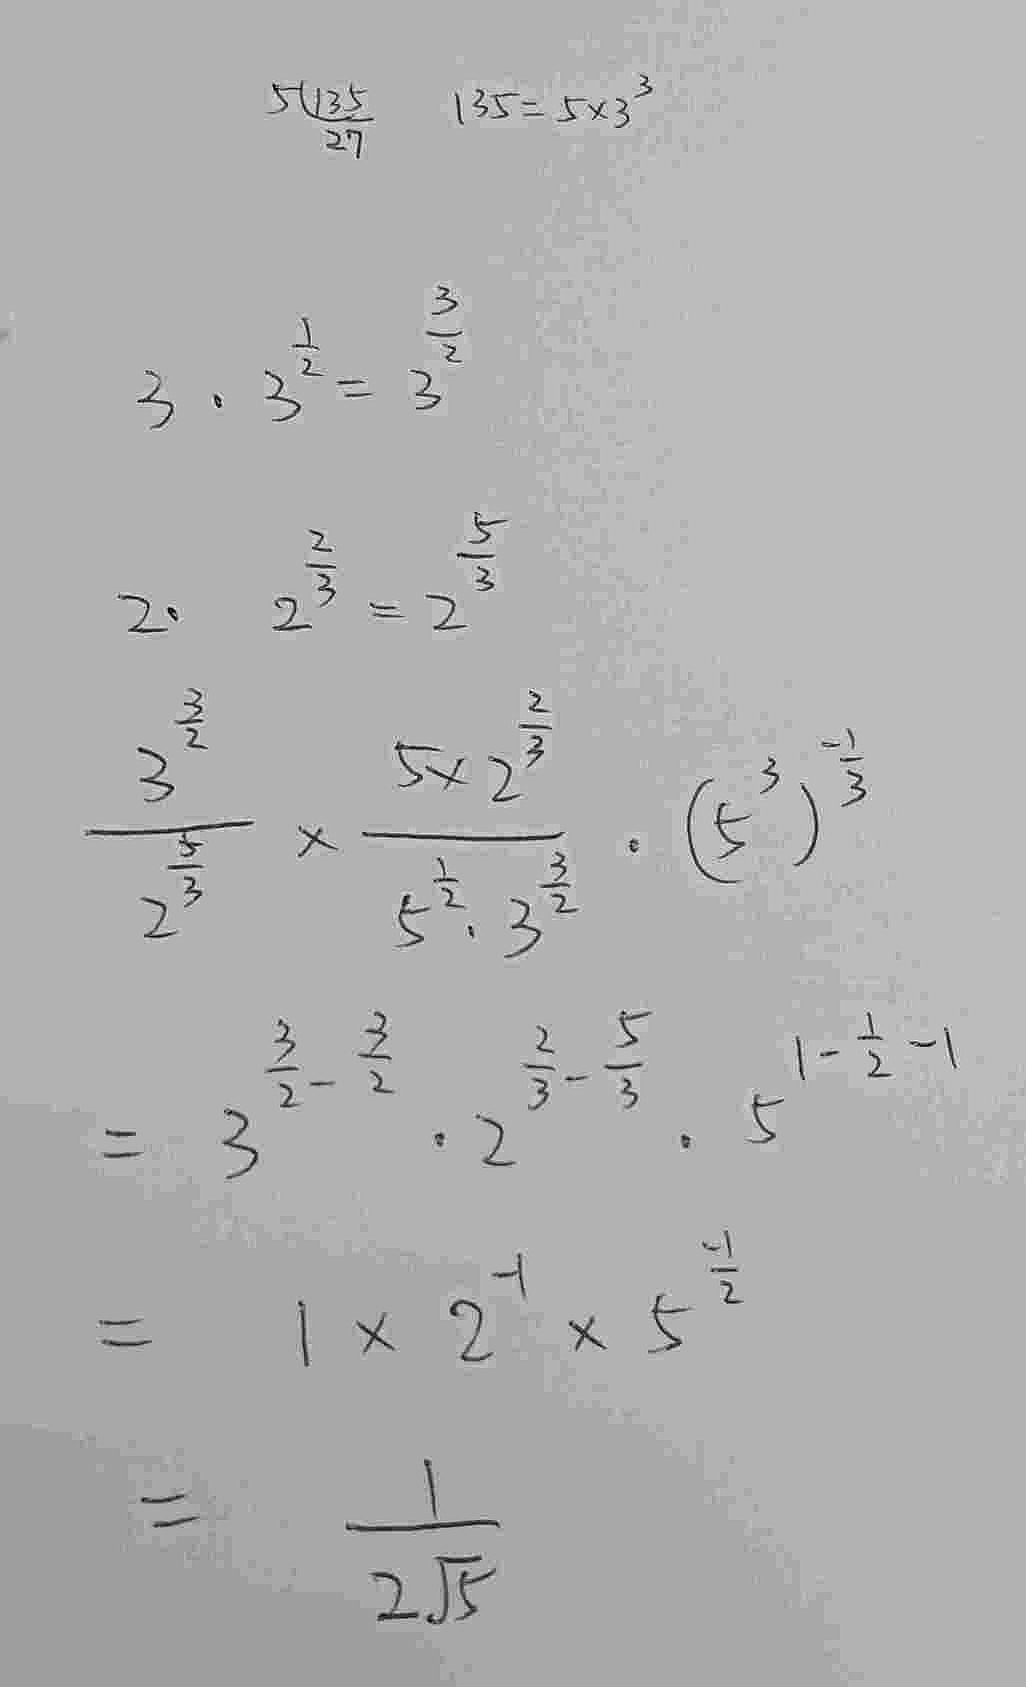 5 135 135 = 5×3^3
27
3 · 3^(1/2) = 3^(3/2)
2 · 2^(2/3) = 2^(5/3)
3^(3/2) / 2^(5/3) × (5×2^(2/3)) / (5^(1/2) · 3^(3/2)) · (5^3)^(-1/3)
= 3^(3/2 - 3/2) · 2^(2/3 - 5/3) · 5^(1 - 1/2 - 1)
= 1 × 2^(-1) × 5^(-1/2)
= 1 / (2√5)